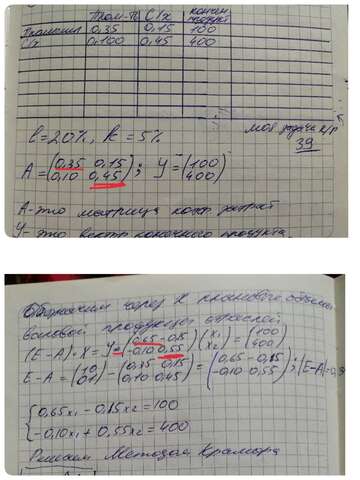 Пром-ть С/х конечн. продукт
Промышл 0,35 0,15 100
С/х 0,100 0,45 400
моя задача к/р
39
l=20%, k=5%
A=(0,35 0,15
0,10 0,45); Y=(100
400)
A-это матрица коэф. затрат
Y-это вектор конечного продукта.
Обозначим через X плановые объёмы
валовой продукции отраслей
(E-A)·X=Y=(0,65 -0,15
-0,10 0,55)(x₁
x₂)=(100
400)
E-A=(1 0
0 1)-(0,35 0,15
0,10 0,45)=(0,65 -0,15
-0,10 0,55); |E-A|=0,3
{0,65x₁-0,15x₂=100
-0,10x₁+0,55x₂=400
Решаем Методом Крамера